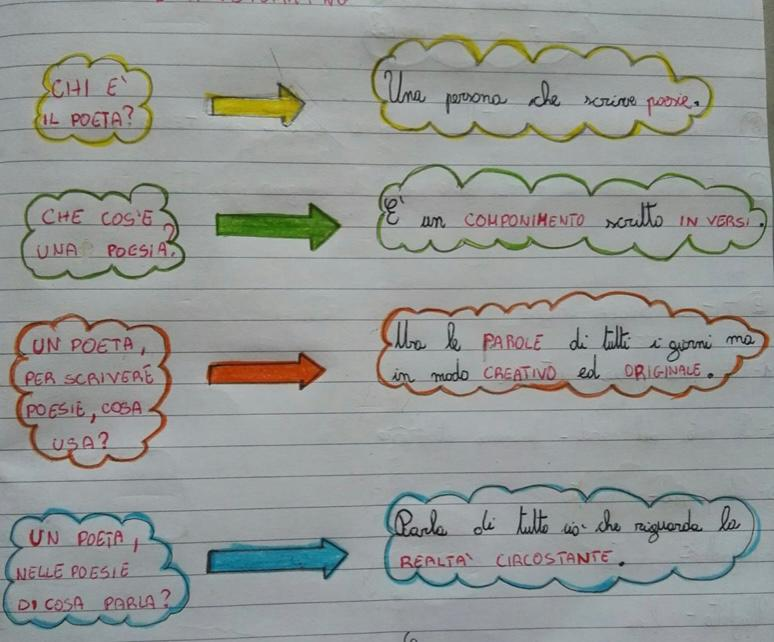 CHI E'
IL POETA?
Una persona che scrive poesie.
CHE COS'E
UNA POESIA?
E' un COMPONIMENTO scritto IN VERSI.
UN POETA,
PER SCRIVERE
POESIE, COSA
USA?
Usa le PAROLE di tutti i giorni ma
in modo CREATIVO ed ORIGINALE.
UN POETA,
NELLE POESIE
DI COSA PARLA?
Parla di tutto ciò che riguarda la
REALTA' CIRCOSTANTE.